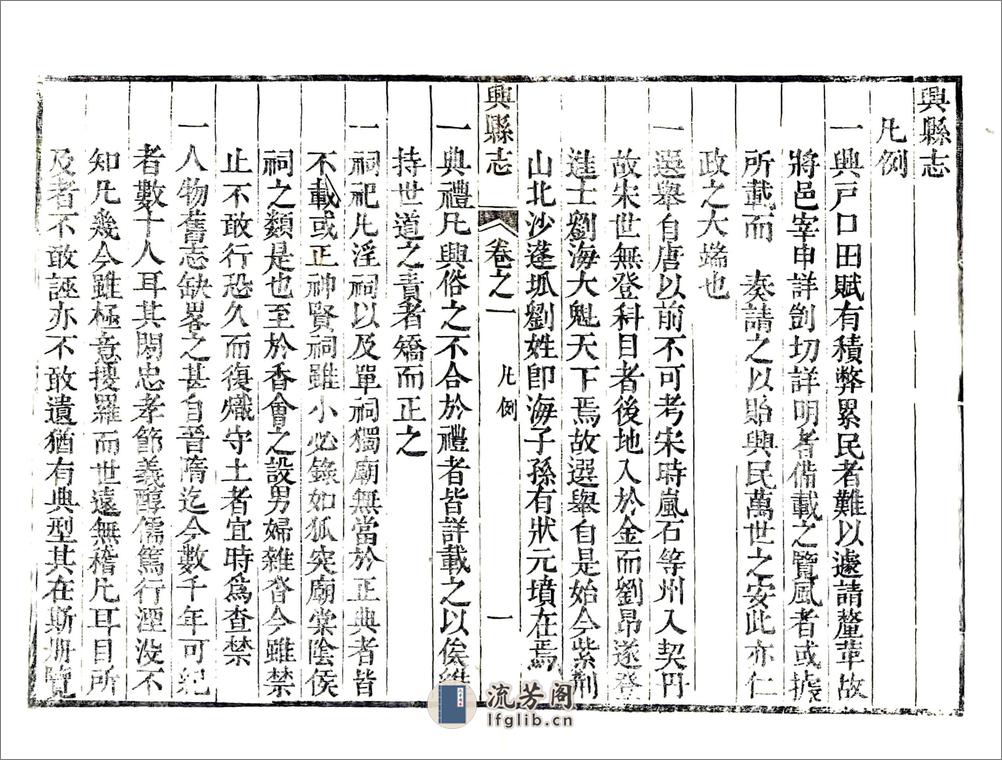 興縣志
凡例
一興戸口田賦有積弊累民者難以遽請釐革故
將邑宰申詳剴切詳明者備載之覽風者或據
所載而　奏請之以貽興民萬世之安此亦仁
政之大端也
一選舉自唐以前不可考宋時嵐石等州入契丹
故宋世無登科目者後地入於金而劉昂遂登
進士劉海大魁天下焉故選舉自是始今紫荆
山北沙蓬坬劉姓即海子孫有狀元墳在焉
興縣志　卷之一　凡例　一
一典禮凡興俗之不合於禮者皆詳載之以俟維
持世道之責者矯而正之
一祠祀凡淫祠以及單祠獨廟無當於正典者皆
不載或正神賢祠雖小必錄如狐突廟棠陰侯
祠之類是也至於香會之設男婦雜沓今雖禁
止不敢行恐久而復熾守土者宜時爲查禁
一人物舊志缺畧之甚自晉隋迄今數千年可紀
者數十人耳其間忠孝節義醇儒篤行湮没不
知凡幾今雖極意搜羅而世遠無稽凡耳目所
及者不敢誣亦不敢遺猶有典型其在斯册覽
流芳阁
lfglib.cn